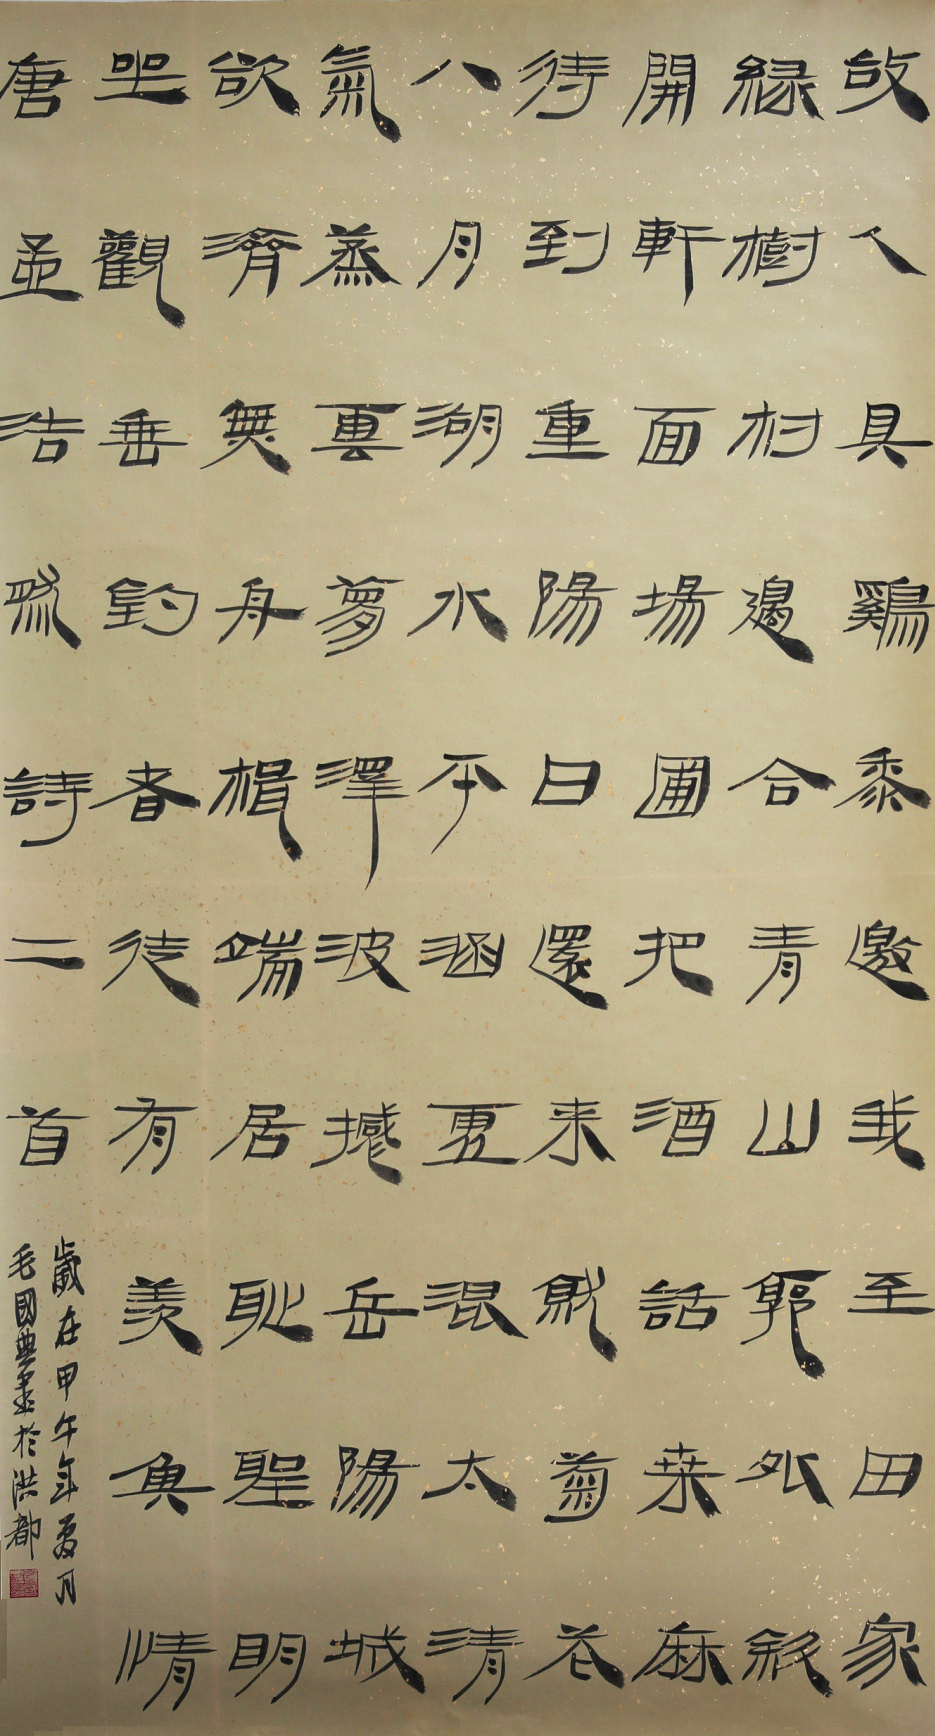 故人具鷄黍邀我至田家
緑樹村邊合青山郭外斜
開軒面場圃把酒話桑麻
待到重陽日還来就菊花
八月湖水平涵虛混太清
氣蒸雲夢澤波撼岳陽城
欲濟無舟楫端居耻聖明
坐觀垂釣者徒有羨魚情
唐孟浩然詩二首
歲在甲午年夏月
毛國典書於洪都